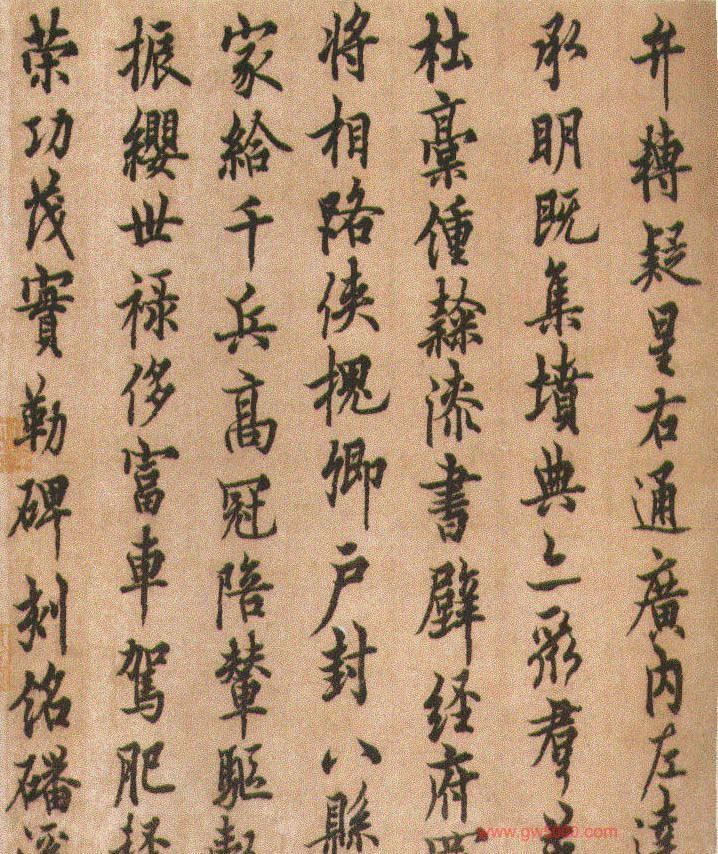 弁轉疑星右通廣内左達
承明既集墳典亦聚群英
杜稾鍾隸漆書壁経府羅
将相路俠槐卿户封八縣
家給千兵高冠陪輦驅轂
振纓世禄侈富車駕肥輕
策功茂實勒碑刻銘磻溪